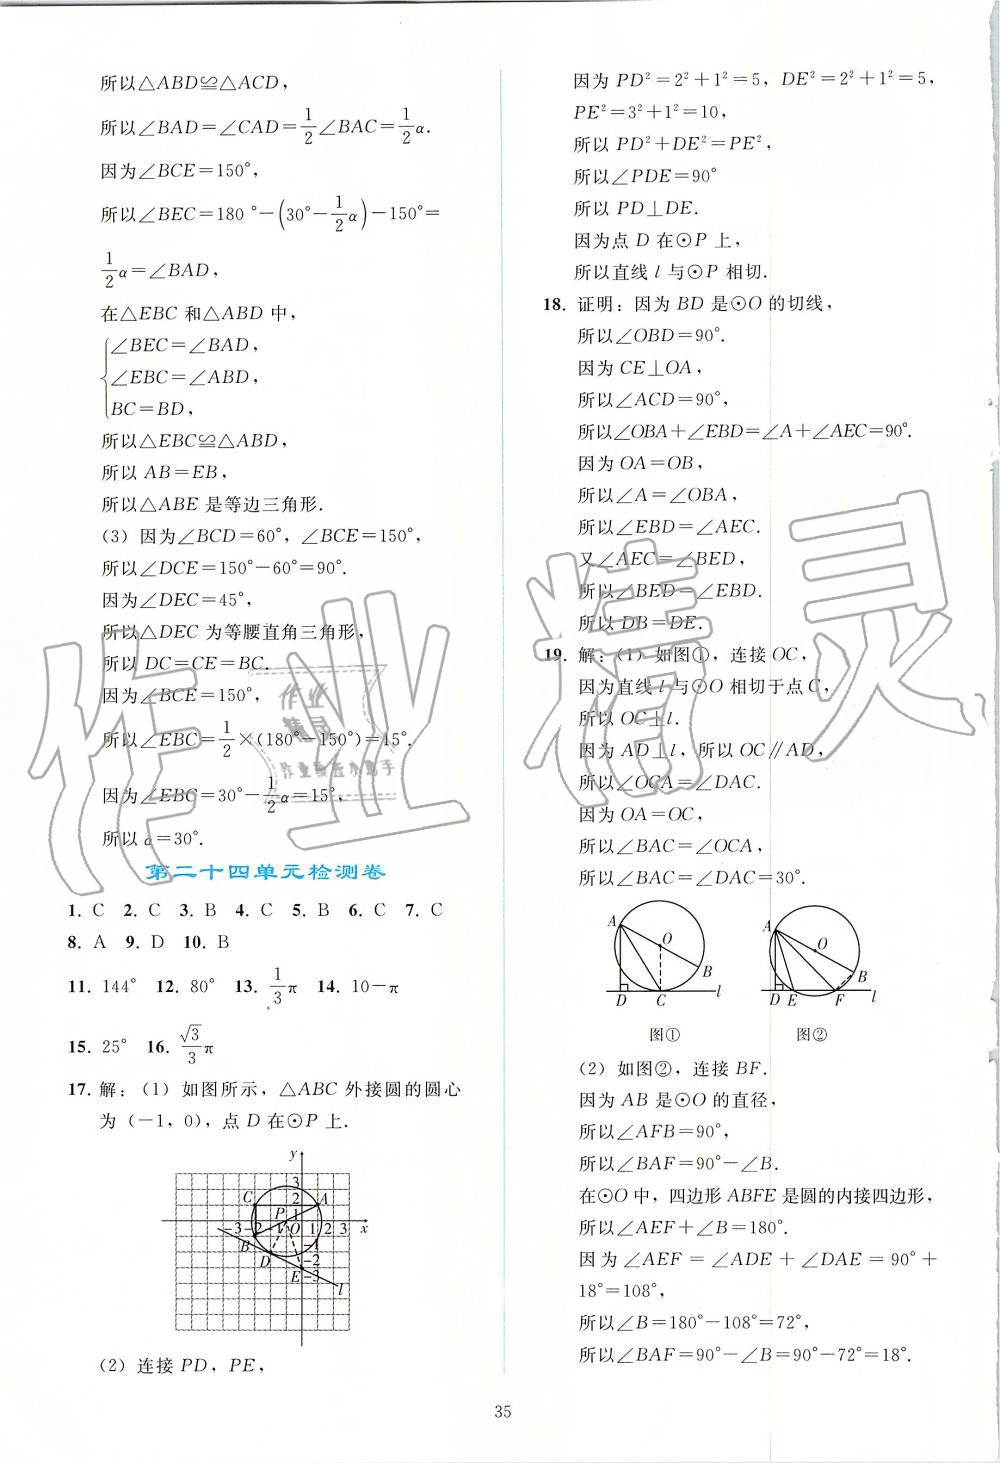 所以△ABD≌△ACD，
所以∠BAD=∠CAD=1/2∠BAC=1/2α.
因为∠BCE=150°，
所以∠BEC=180°-(30°-1/2α)-150°=
1/2α=∠BAD，
在△EBC 和△ABD 中，
∠BEC=∠BAD，
∠EBC=∠ABD，
BC=BD，
所以△EBC≌△ABD，
所以 AB=EB，
所以△ABE 是等边三角形.
(3) 因为∠BCD=60°，∠BCE=150°，
所以∠DCE=150°-60°=90°.
因为∠DEC=45°，
所以△DEC 为等腰直角三角形，
所以 DC=CE=BC.
因为∠BCE=150°，
所以∠EBC=1/2×(180°-150°)=15°.
因为∠EBC=30°-1/2α=15°，
所以 α=30°.
第二十四单元检测卷
1. C 2. C 3. B 4. C 5. B 6. C 7. C
8. A 9. D 10. B
11. 144° 12. 80° 13. 1/3π 14. 10-π
15. 25° 16. √3/3π
17. 解：(1) 如图所示，△ABC 外接圆的圆心
为(-1，0)，点 D 在⊙P 上.
y
3
C 2 A
P 1
-3 -2 -1 O 1 2 3 x
B -1
D -2
E -3
l
(2) 连接 PD，PE，
因为 PD²=2²+1²=5，DE²=2²+1²=5，
PE²=3²+1²=10，
所以 PD²+DE²=PE²，
所以∠PDE=90°
所以 PD⊥DE.
因为点 D 在⊙P 上，
所以直线 l 与⊙P 相切.
18. 证明：因为 BD 是⊙O 的切线，
所以∠OBD=90°.
因为 CE⊥OA，
所以∠ACD=90°，
所以∠OBA+∠EBD=∠A+∠AEC=90°.
因为 OA=OB，
所以∠A=∠OBA，
所以∠EBD=∠AEC.
又∠AEC=∠BED，
所以∠BED=∠EBD.
所以 DB=DE.
19. 解：(1) 如图①，连接 OC，
因为直线 l 与⊙O 相切于点 C，
所以 OC⊥l.
因为 AD⊥l，所以 OC∥AD，
所以∠OCA=∠DAC.
因为 OA=OC，
所以∠BAC=∠OCA，
所以∠BAC=∠DAC=30°.
A O B D C l
A O B D E F l
图① 图②
(2) 如图②，连接 BF.
因为 AB 是⊙O 的直径，
所以∠AFB=90°，
所以∠BAF=90°-∠B.
在⊙O 中，四边形 ABFE 是圆的内接四边形，
所以∠AEF+∠B=180°.
因为∠AEF=∠ADE+∠DAE=90°+
18°=108°，
所以∠B=180°-108°=72°，
所以∠BAF=90°-∠B=90°-72°=18°.
35
作业精灵
作业
精灵